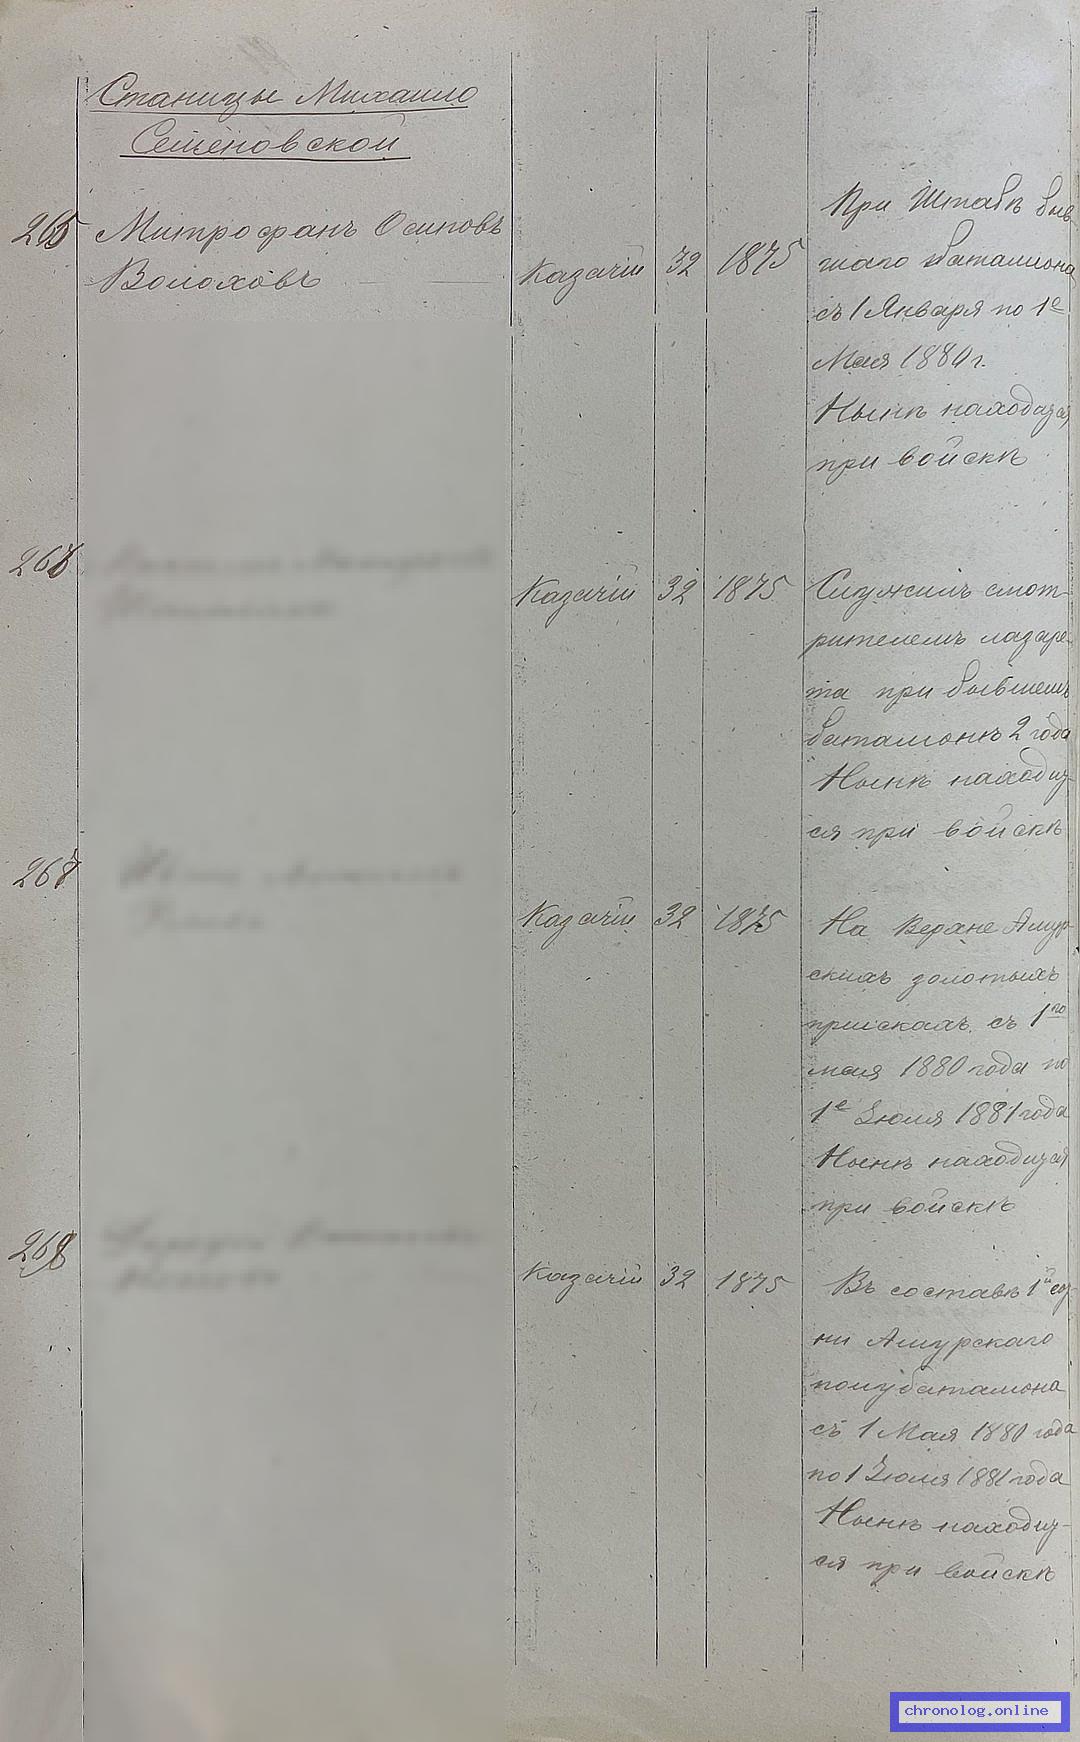 Станицы Михаило
Семеновской
265 Митрофанъ Осиповъ
Волоховъ
Казачій 32 1875
При Штабѣ быв
шаго баталиона
съ 1 Января по 1е
Мая 1880 г.
Нынѣ находится
при войскѣ
266
Казачій 32 1875
Служилъ смот-
рителемъ лазаре-
та при бывшемъ
баталионѣ 2 года
Нынѣ находит-
ся при войскѣ
267
Казачій 32 1875
На Верхне Амур-
скихъ золотыхъ
приискахъ съ 1го
мая 1880 года по
1е Іюля 1881 года
Нынѣ находится
при войскѣ
268
Казачій 32 1875
Въ составѣ 1й сот
ни Амурскаго
полубаталиона
съ 1 Мая 1880 года
по 1 Іюля 1881 года
Нынѣ находит-
ся при войскѣ
chronolog.online